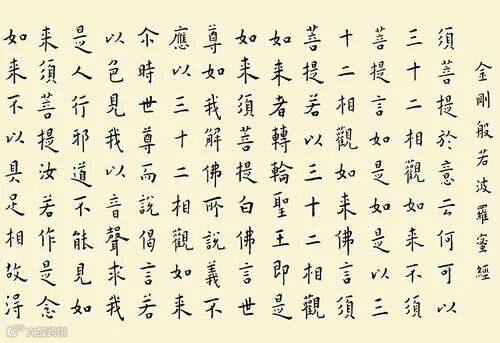 金剛般若波羅蜜經
須菩提於意云何可以
三十二相觀如來不須
菩提言如是如是以三
十二相觀如來佛言須
菩提若以三十二相觀
如來者轉輪聖王即是
如來須菩提白佛言世
尊如我解佛所說義不
應以三十二相觀如來
尒時世尊而說偈言若
以色見我以音聲求我
是人行邪道不能見如
來須菩提汝若作是念
如來不以具足相故得
大数跨境